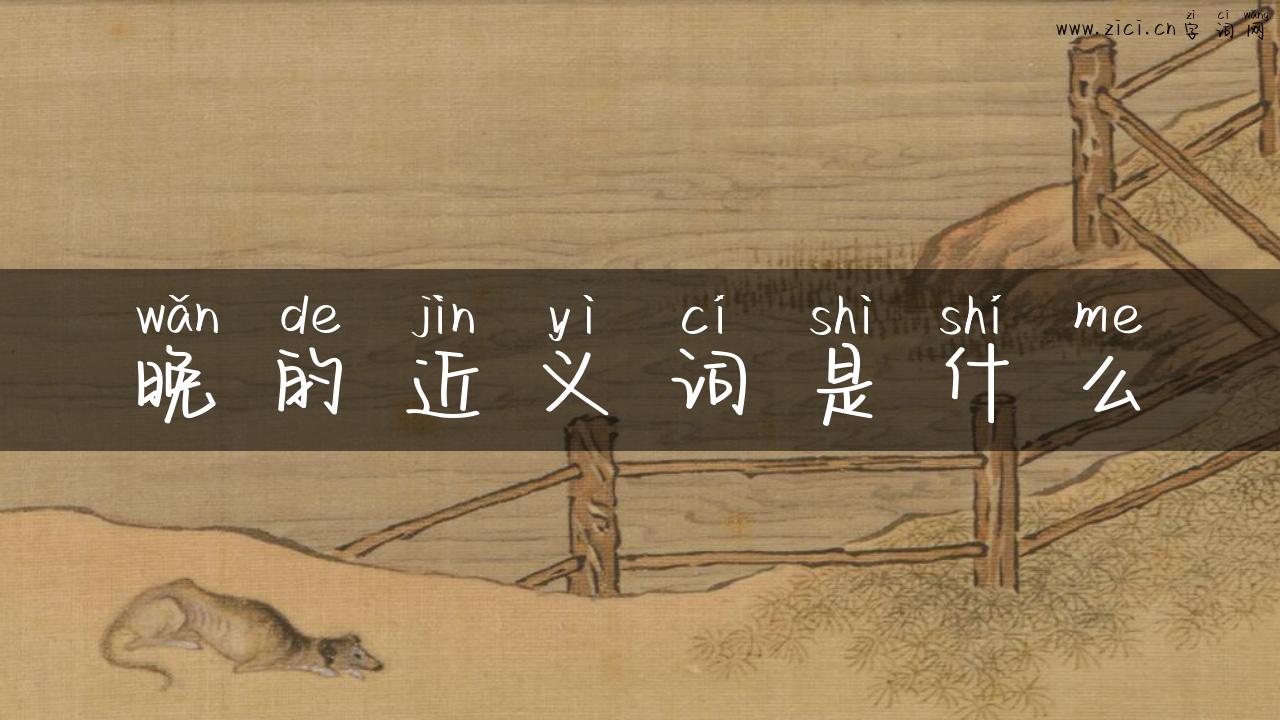 zi ci wang
www.zici.cn 字词网
wǎn de jìn yì cí shì shí me
晚的近义词是什么